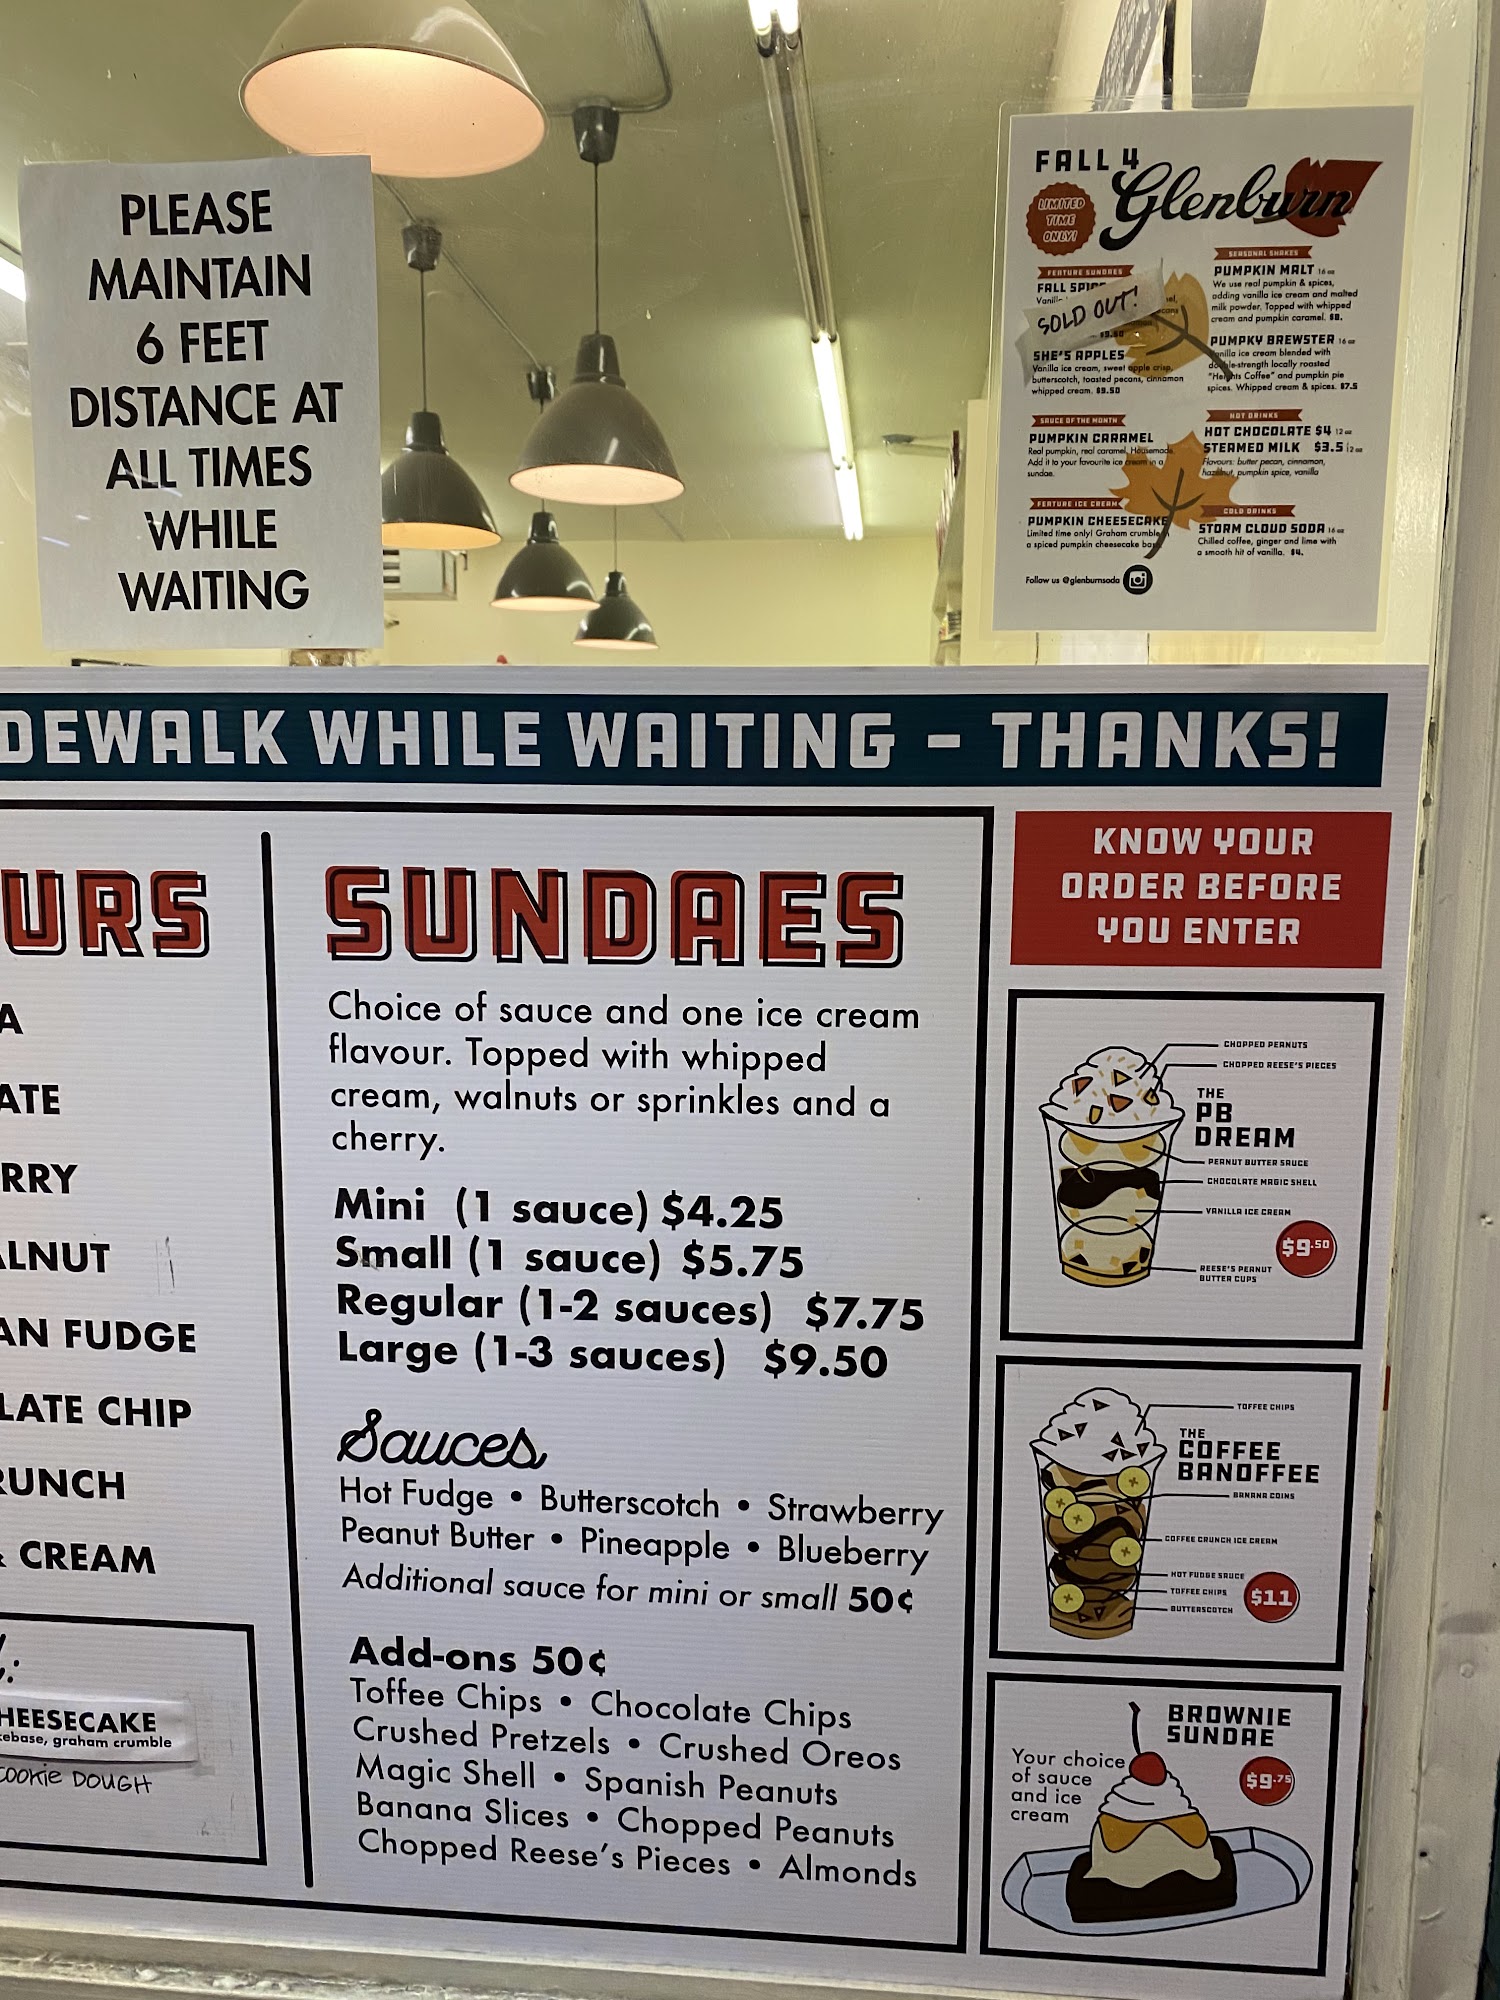 PLEASE
MAINTAIN
6 FEET
DISTANCE AT
ALL TIMES
WHILE
WAITING
FALL 4
Glenburn
LIMITED
TIME
ONLY!
FEATURE SUNDAES
FALL SPIC
Vanill
SOLD OUT!
$9.50
SHE'S APPLES
Vanilla ice cream, sweet apple crisp,
butterscotch, toasted pecans, cinnamon
whipped cream. $9.50
SAUCE OF THE MONTH
PUMPKIN CARAMEL
Real pumpkin, real caramel, Housemade.
Add it to your favourite ice cream in a
sundae.
FEATURE ICE CREAM
PUMPKIN CHEESECAKE
Limited time only! Graham crumble
a spiced pumpkin cheesecake base
Follow us @glenburnsoda
SEASONAL SHAKES
PUMPKIN MALT 16 oz
We use real pumpkin & spices,
adding vanilla ice cream and malted
milk powder. Topped with whipped
cream and pumpkin caramel. $8.
PUMPKY BREWSTER 16 oz
Vanilla ice cream blended with
double-strength locally roasted
"Heights Coffee" and pumpkin pie
spices. Whipped cream & spices. $7.5
HOT DRINKS
HOT CHOCOLATE $4 12 oz
STEAMED MILK $3.5 12 oz
Flavours: butter pecan, cinnamon,
hazelnut, pumpkin spice, vanilla
COLD DRINKS
STORM CLOUD SODA 16 oz
Chilled coffee, ginger and lime with
a smooth hit of vanilla. $4.
DEWALK WHILE WAITING - THANKS!
URS
A
ATE
RRY
ALNUT
AN FUDGE
LATE CHIP
RUNCH
& CREAM
HEESECAKE
kebase, graham crumble
COOKIE DOUGH
SUNDAES
Choice of sauce and one ice cream
flavour. Topped with whipped
cream, walnuts or sprinkles and a
cherry.
Mini (1 sauce) $4.25
Small (1 sauce) $5.75
Regular (1-2 sauces) $7.75
Large (1-3 sauces) $9.50
Sauces
Hot Fudge • Butterscotch • Strawberry
Peanut Butter • Pineapple • Blueberry
Additional sauce for mini or small 50¢
Add-ons 50¢
Toffee Chips • Chocolate Chips
Crushed Pretzels • Crushed Oreos
Magic Shell • Spanish Peanuts
Banana Slices • Chopped Peanuts
Chopped Reese's Pieces • Almonds
KNOW YOUR
ORDER BEFORE
YOU ENTER
CHOPPED PEANUTS
CHOPPED REESE'S PIECES
THE
PB
DREAM
PEANUT BUTTER SAUCE
CHOCOLATE MAGIC SHELL
VANILLA ICE CREAM
$9.50
REESE'S PEANUT
BUTTER CUPS
TOFFEE CHIPS
THE
COFFEE
BANOFFEE
BANANA COINS
COFFEE CRUNCH ICE CREAM
HOT FUDGE SAUCE
TOFFEE CHIPS
$11
BUTTERSCOTCH
BROWNIE
SUNDAE
Your choice
of sauce
and ice
cream
$9.75